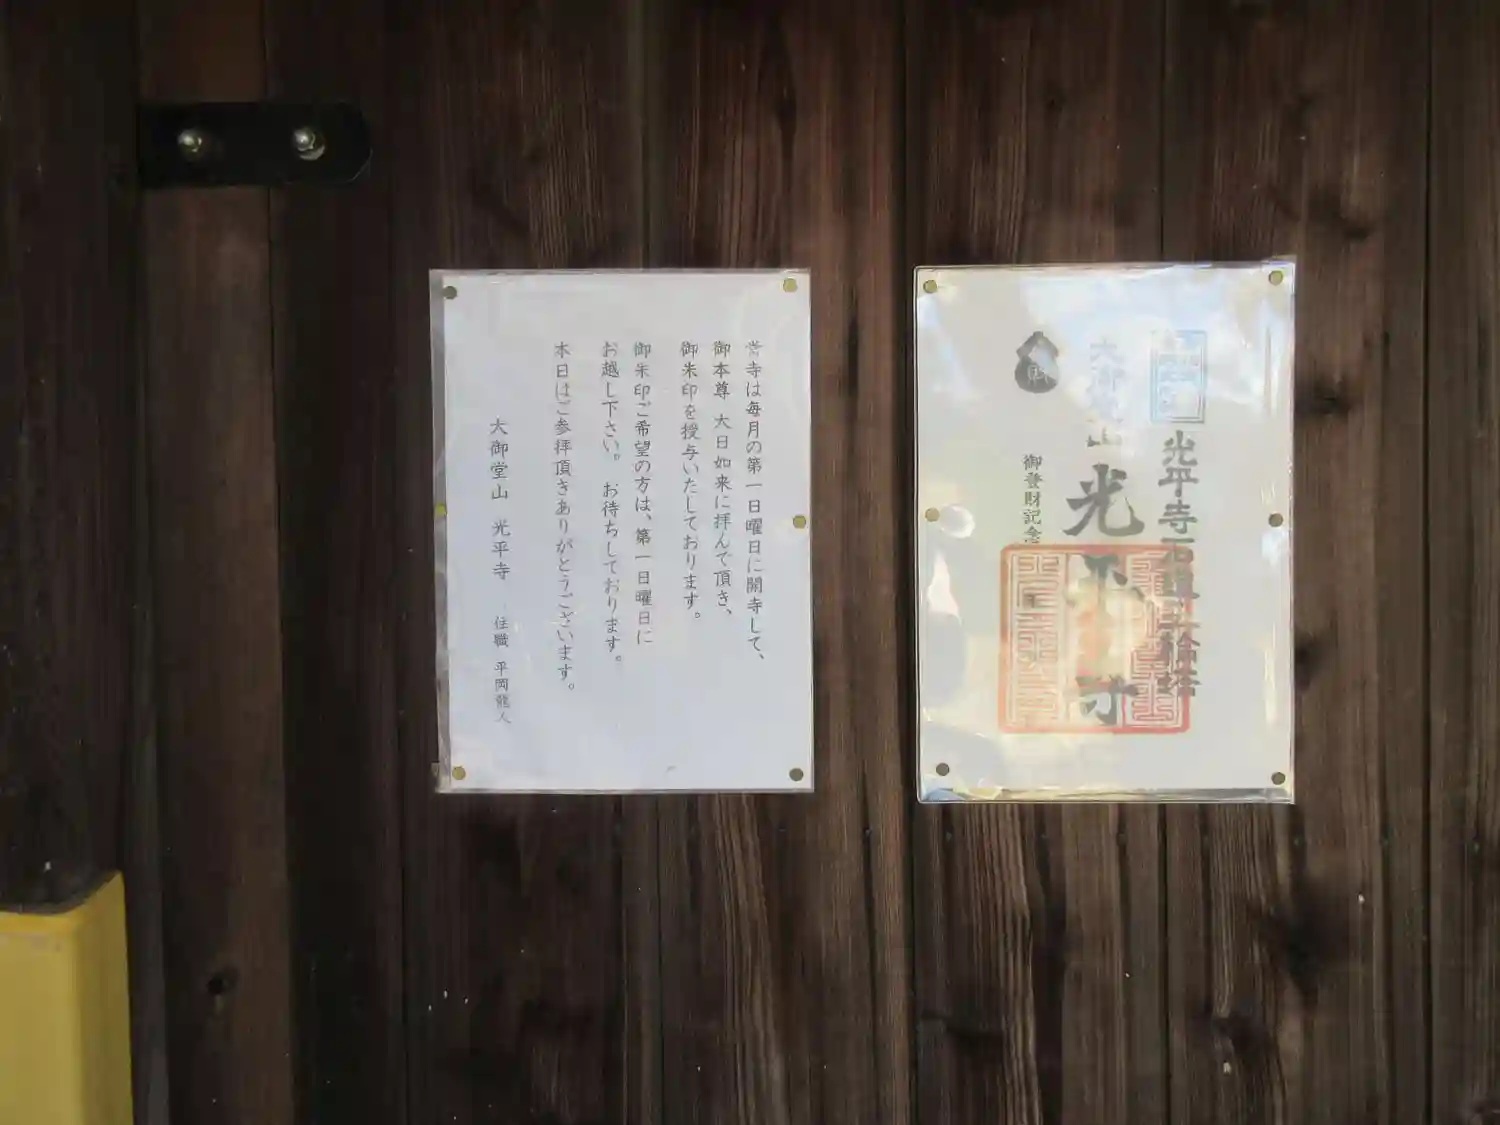 当寺は毎月の第一日曜日に開寺して、
御本尊 大日如来に拝んで頂き、
御朱印を授与いたしております。
御朱印ご希望の方は、第一日曜日に
お越し下さい。 お待ちしております。
本日はご参拝頂きありがとうございます。
大御堂山 光平寺 住職 平岡龍人
光平寺石造五輪塔
大御堂山 光平寺
御登財記念
財